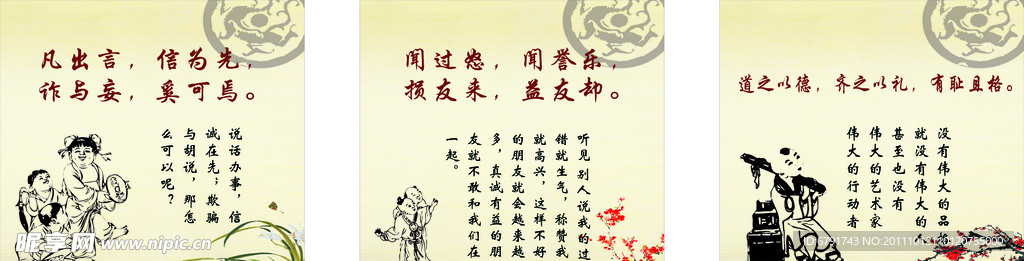 凡出言，信为先，
诈与妄，奚可焉。
说话办事，信
诚在先；欺骗
与胡说，那怎
么可以呢？
闻过怒，闻誉乐，
损友来，益友却。
听见别人说我的过
错就生气，称赞我
就高兴，这样不好
的朋友就会越来越
多，真诚有益的朋
友就不敢和我们在
一起。
道之以德，齐之以礼，有耻且格。
没有伟大的品格
就没有伟大的
甚至也没有
伟大的艺术家
伟大的行动者
昵享网 www.nipic.cn